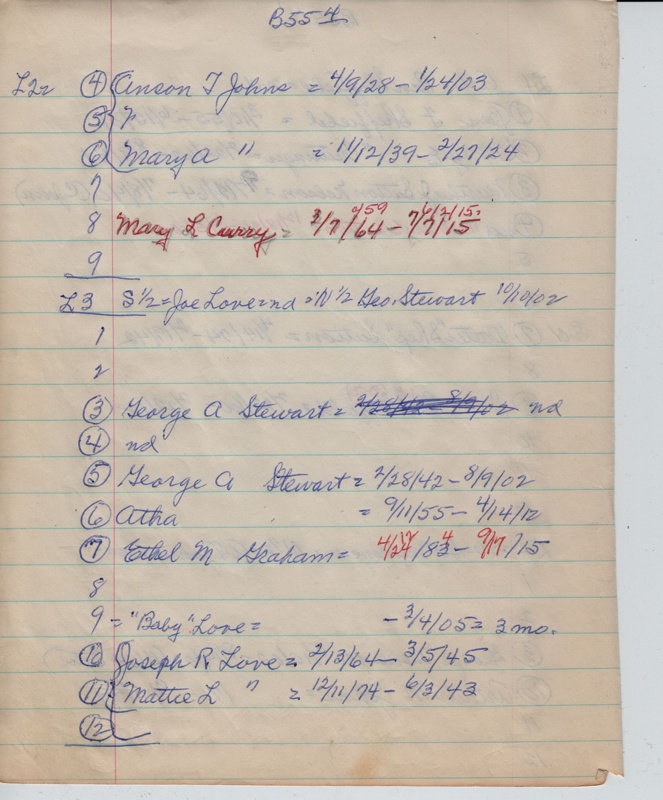 B55 4
L22 4 Anson T Johns = 4/9/28 - 1/24/03
5
6 Mary A " = 11/12/39 - 2/27/24
7
8 Mary L Curry = 3/7/64 - 7/7/15
9
L3 S 1/2 = Joe Love = nd - N 1/2 Geo. Stewart 10/10/02
1
2
3 George A Stewart = 2/28/42 - 8/9/02 nd
4 nd
5 George A Stewart = 2/28/42 - 8/9/02
6 Atha = 9/11/55 - 4/14/12
7 Ethel M Graham = 4/24/83 - 9/17/15
8
9 = "Baby" Love = - 3/4/05 = 3 mo.
10 Joseph R Love = 2/13/64 - 3/5/45
11 Mattie L " = 12/11/74 - 6/3/43
12